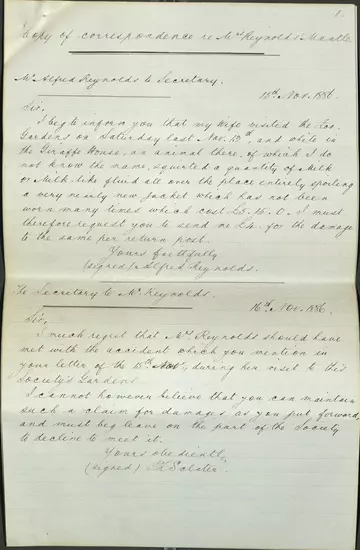 Copy of correspondence re Mrs Reynolds's Mantle
Mr Alfred Reynolds to Secretary.
15th Nov. 1886.
Sir,
I beg to inform you that my Wife visited the Zoo.
Gardens on Saturday last Nov. 13th, and while in
the Giraffe House, an animal there, of which I do
not know the name, squirted a quantity of Milk
or Milk-like fluid all over the place entirely spoiling
a very nearly new jacket which has not been
worn many times which cost £5. 15. 0. I must
therefore request you to send me £4. for the damage
to the same per return post.
Yours faithfully
(signed) Alfred Reynolds.
The Secretary to Mr Reynolds.
16th Nov. 1886.
Sir,
I much regret that Mrs. Reynolds should have
met with the accident which you mention in
your letter of the 15th Nov, during her visit to this
Society's Gardens.
I cannot however believe that you can maintain
such a claim for damages as you put forward
and must beg leave on the part of the Society
to decline to meet it.
Yours obediently,
(signed) P L Sclater.